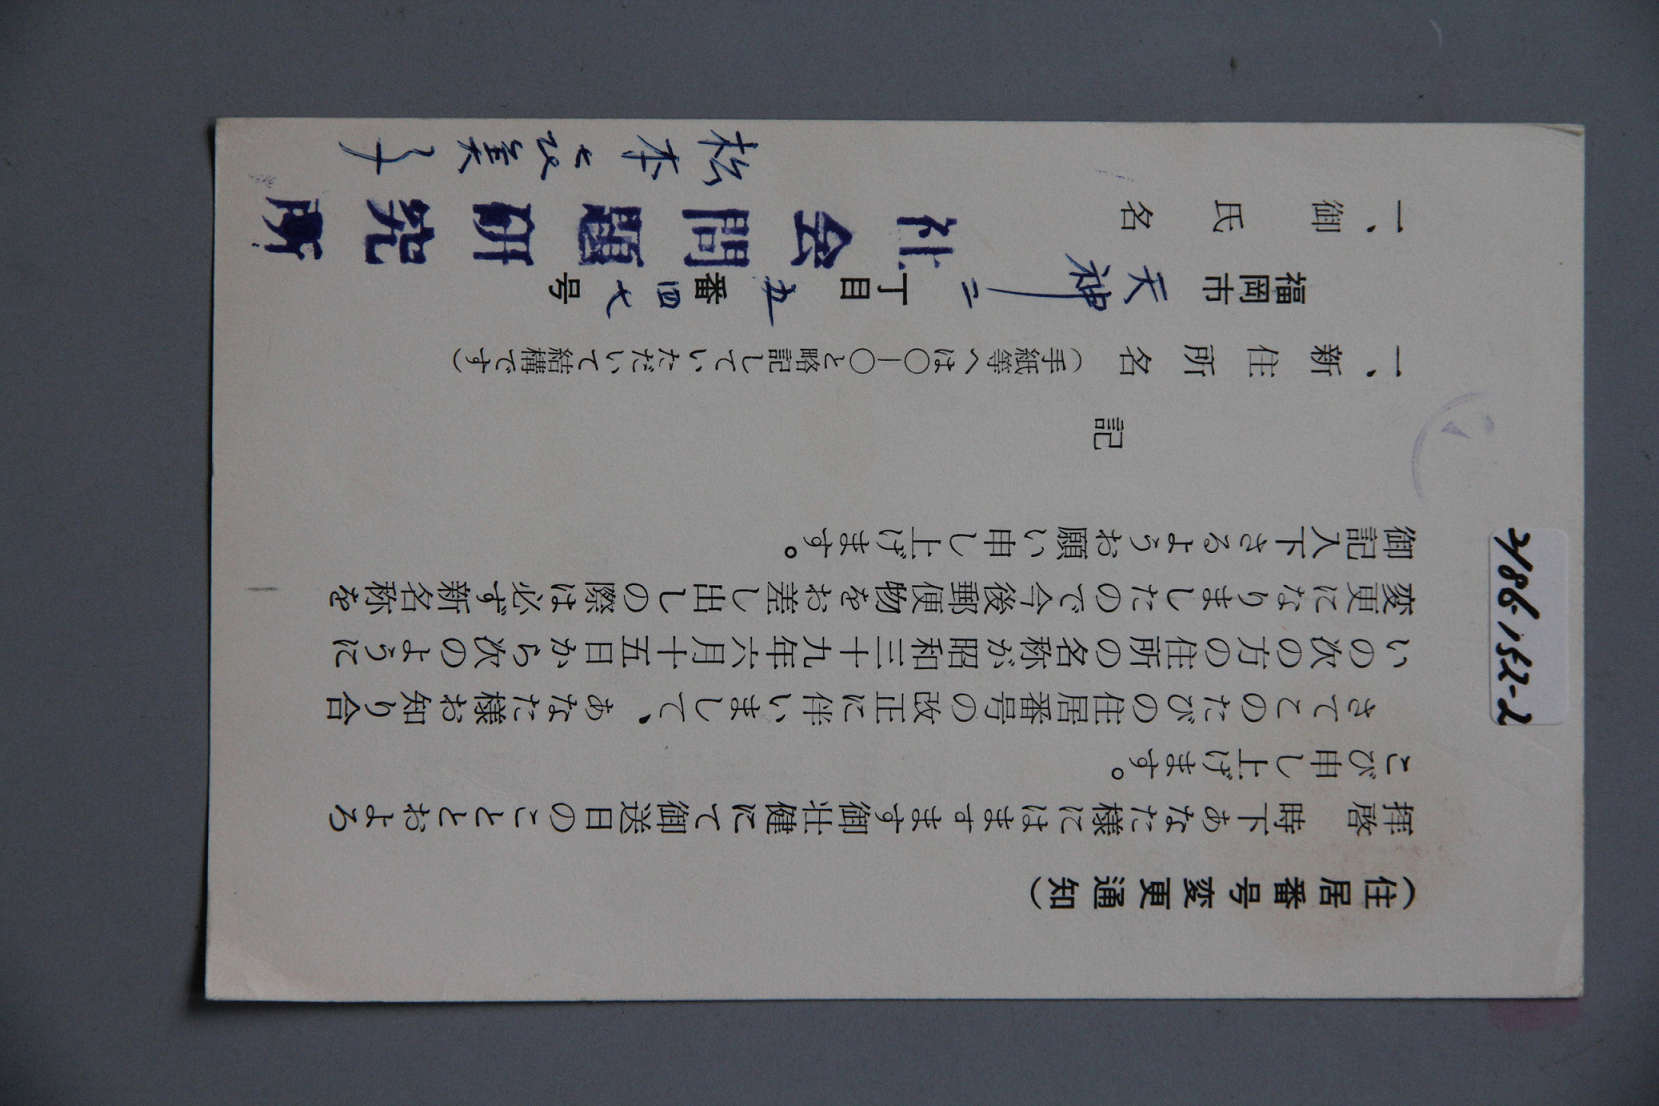 (住居番号変更通知)
拝啓 時下あなた様にはますます御壮健にて御送日のこととおよろ
こび申し上げます。
さてこのたびの住居番号の改正に伴いまして、あなた様お知り合
いの次の方の住所の名称が昭和三十九年六月十五日から次のように
変更になりましたので今後郵便物をお差し出しの際は必ず新名称を
御記入下さるようお願い申し上げます。
記
一、新住所名(手紙等へは〇―〇と略記していただいて結構です)
福岡市天神二丁目五番四七号
一、御氏名
社会問題研究所
松本
2186-152-2